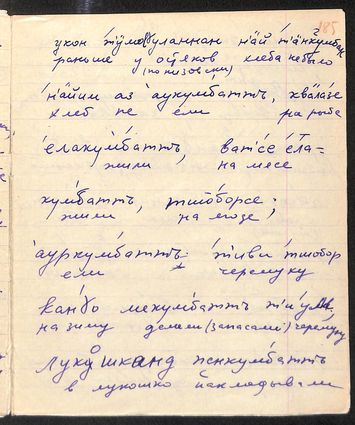 185
укон тӱмоғуланнан н'ай т'а̄нкумбат
раньше у остяков хлеба не было
(по низовски)
н'айим аз аукумбатт, ква̄лазе
хлеб не ели на рыбе
е̄лакумбатт, ват'се е̄ла-
жили на мясе
кумбатт, тшоборсе;
жили на ягоде
аурку́мбатт тиви тшобор
ели черемуку
канбо мекумбатт
на зиму делали (запасали) черемуку
лукошканд пенкумбатт
в лукошко накладывали